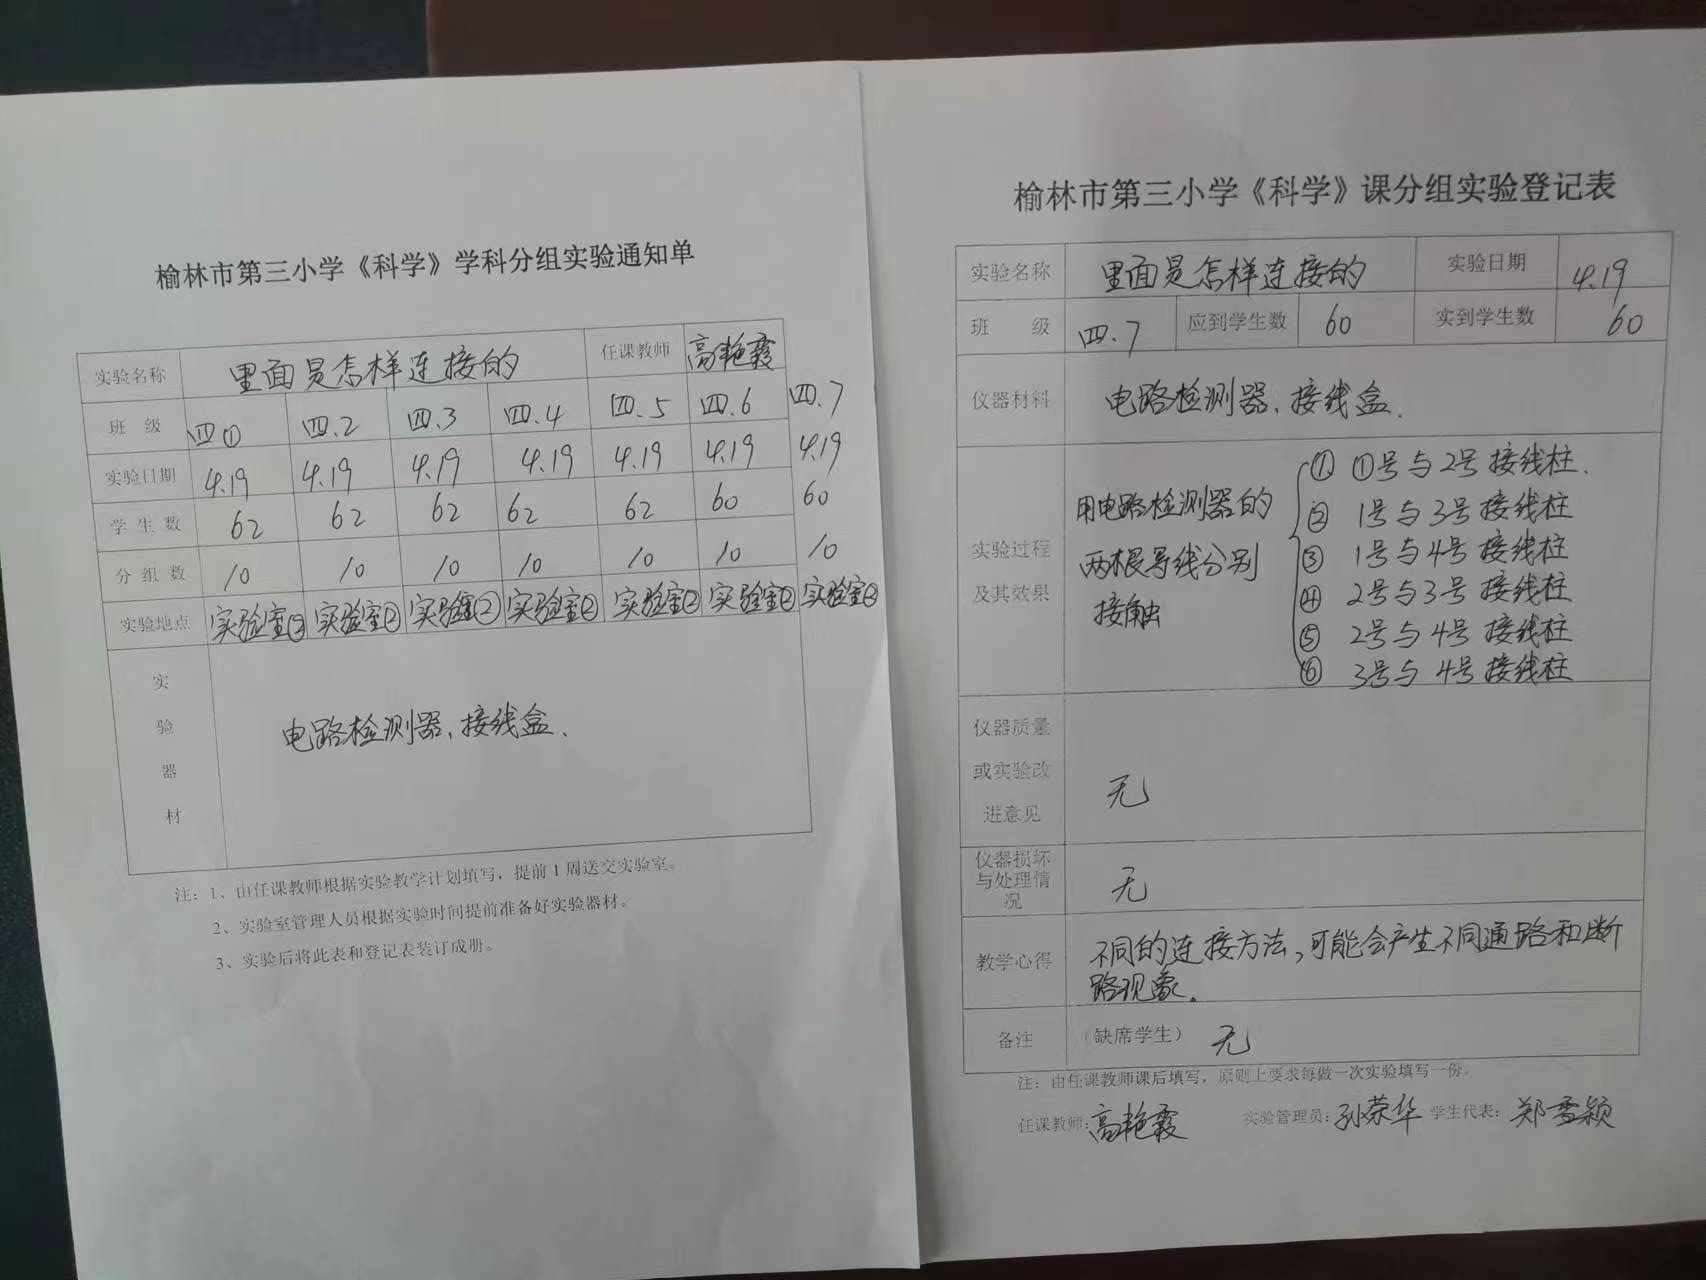 榆林市第三小学《科学》学科分组实验通知单
实验名称 里面是怎样连接的 任课教师 高艳霞
班 级 四① 四.2 四.3 四.4 四.5 四.6 四.7
实验日期 4.19 4.19 4.19 4.19 4.19 4.19 4.19
学 生 数 62 62 62 62 62 60 60
分 组 数 10 10 10 10 10 10 10
实验地点 实验室② 实验室② 实验室② 实验室② 实验室② 实验室② 实验室②
实
验
器
材
电路检测器、接线盒.
注：1、由任课教师根据实验教学计划填写，提前1周送交实验室。
2、实验室管理人员根据实验时间提前准备好实验器材。
3、实验后将此表和登记表装订成册。
榆林市第三小学《科学》课分组实验登记表
实验名称 里面是怎样连接的 实验日期 4.19
班 级 四.7 应到学生数 60 实到学生数 60
仪器材料 电路检测器、接线盒.
实验过程
及其效果
用电路检测器的
两根导线分别
接触
① ①号与2号接线柱.
② 1号与3号接线柱
③ 1号与4号接线柱
④ 2号与3号接线柱
⑤ 2号与4号接线柱
⑥ 3号与4号接线柱
仪器质量
或实验改
进意见
无
仪器损坏
与处理情
况
无
教学心得
不同的连接方法,可能会产生不同通路和断
路现象.
备注 （缺席学生） 无
注：由任课教师课后填写，原则上要求每做一次实验填写一份。
任课教师:高艳霞 实验管理员:孙荣华 学生代表:郑雪颖